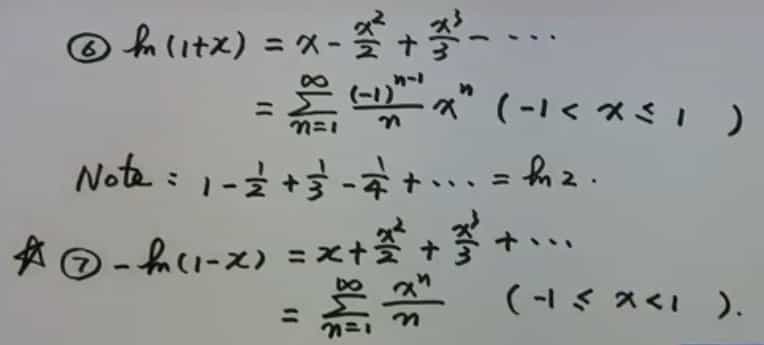 ⑥ ln(1+x) = x - x²/2 + x³/3 - ...
= ∑_{n=1}^{∞} (-1)^{n-1}/n x^n (-1 < x ≤ 1)
Note: 1 - 1/2 + 1/3 - 1/4 + ... = ln 2.
☆ ⑦ -ln(1-x) = x + x²/2 + x³/3 + ...
= ∑_{n=1}^{∞} x^n/n (-1 ≤ x < 1).